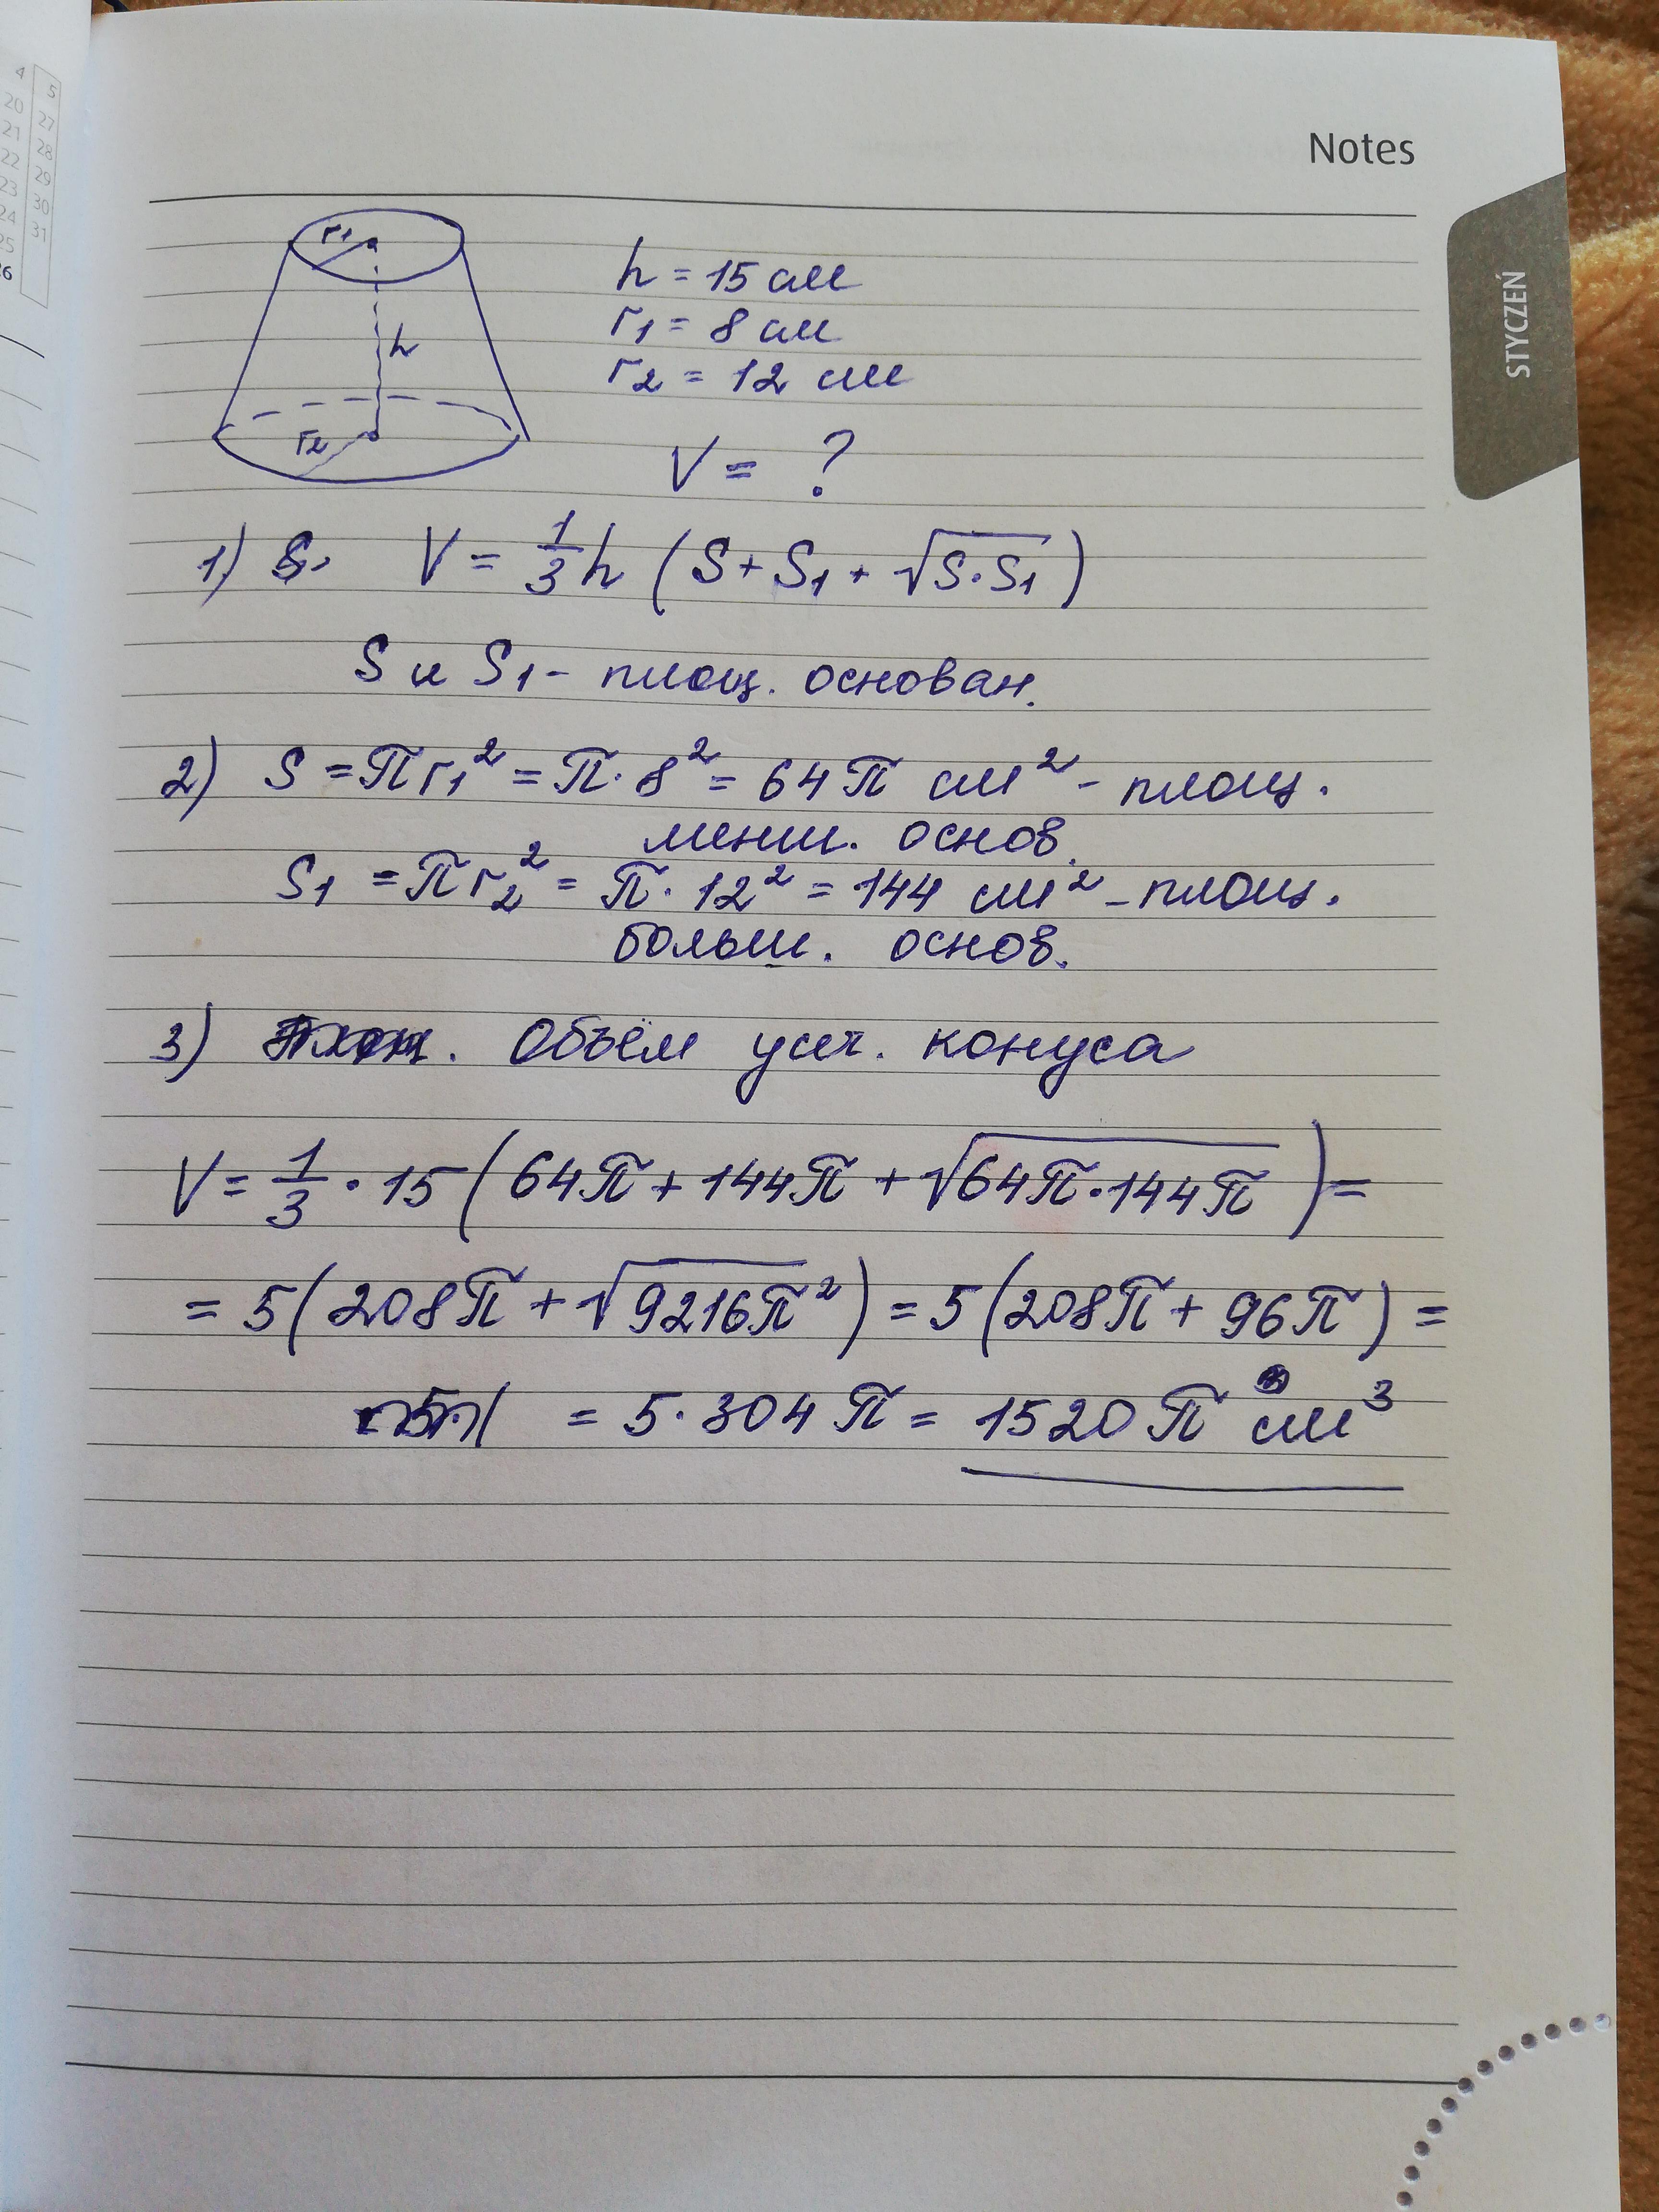 Notes
STYCZEŃ
4 5
20 27
21 28
22 29
23 30
24 31
25
26
r1
h
r2
h = 15 см
r1 = 8 см
r2 = 12 см
V = ?
1) S. V = 1/3 h (S + S1 + √S·S1)
S и S1 - площ. основан.
2) S = πr1² = π·8² = 64π см² - площ.
меньш. основ.
S1 = πr2² = π·12² = 144 см² - площ.
больш. основ.
3) Объём усеч. конуса
V = 1/3 · 15 (64π + 144π + √64π·144π) =
= 5(208π + √9216π²) = 5(208π + 96π) =
= 5·304π = 1520π см³